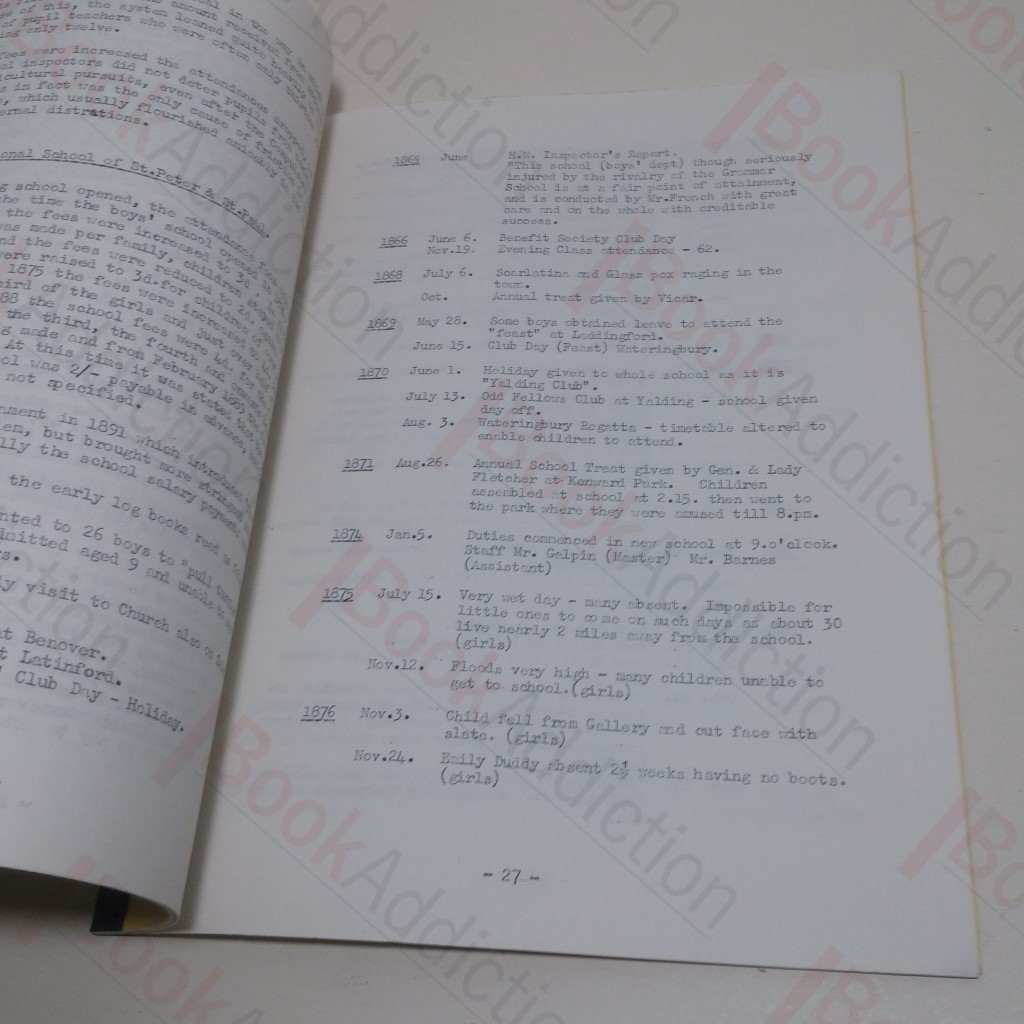 of this, the system leaned quite heavily
of pupil teachers who were often only
only twelve.
fees were increased the attendances dropped
inspectors did not deter pupils from
pursuits, even after the
in fact was the only cause of friction
which usually flourished amicably
distrations.
onal School of St.Peter & St.Paul.
school opened, the attendance
the time the boys' school opened
the fees were increased to 3d
was made per family, children
and the fees were reduced to 2d.
were raised to 3d.for children of
1875 the fees were increased to
third of the girls and just over
88 the school fees were 4d. for
the third, the fourth and
made and from February 1889
At this time it was stated
ool was 2/- payable in advance,
not specified.
nment in 1891 which introduced
lem, but brought more
lly the school salary payment
the early log books read
nted to 26 boys to "pull
dmitted aged 9 and unable to
rs.
ly visit to Church also on
at Benover.
t Latinford.
Club Day - Holiday.
1865 June H.M. Inspector's Report.
"This school (boys' dept) though seriously
injured by the rivalry of the Grammar
School is at a fair point of attainment,
and is conducted by Mr.French with great
care and on the whole with creditable
success.
1866 June 6. Benefit Society Club Day
Nov.19. Evening Class attendance - 62.
1868 July 6. Scarlatina and Glass pox raging in the
town.
Oct. Annual treat given by Vicar.
1869 May 28. Some boys obtained leave to attend the
"feast" at Laddingford.
June 15. Club Day (Feast) Wateringbury.
1870 June 1. Holiday given to whole school as it is
"Yalding Club".
July 13. Odd Fellows Club at Yalding - school given
day off.
Aug. 3. Wateringbury Regatta - timetable altered to
enable children to attend.
1871 Aug.26. Annual School Treat given by Gen. & Lady
Fletcher at Kenward Park. Children
assembled at school at 2.15. then went to
the park where they were amused till 8.pm.
1874 Jan.5. Duties commenced in new school at 9.o'clock.
Staff Mr. Galpin (Master) Mr. Barnes
(Assistant)
1875 July 15. Very wet day - many absent. Impossible for
little ones to come on such days as about 30
live nearly 2 miles away from the school.
(girls)
Nov.12. Floods very high - many children unable to
get to school.(girls)
1876 Nov.3. Child fell from Gallery and cut face with
slate. (girls)
Nov.24. Emily Duddy absent 2½ weeks having no boots.
(girls)
- 27 -
BookAddiction